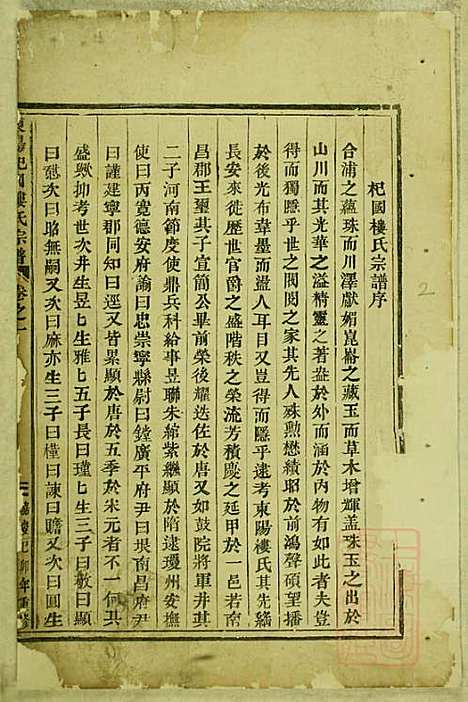 杞國樓氏宗譜序
合浦之蘊珠而川澤獻媚崑崙之藏玉而草木增輝蓋珠玉之出於
山川而其光華之溢精靈之著盎於外而涵於內物有如此者夫豈
得而獨隱乎世之閥閱之家其先人殊勲懋績昭於前鴻聲碩望播
於後光布韋墨而溢人耳目又豈得而隱乎逮考東陽樓氏其先繇
長安來徙歷世官爵之盛階秩之榮流芳積慶之延甲於一邑若南
昌郡王璽其子宜簡公畢前榮後耀迭佐於唐又如鼓院將軍并其
二子河南節度使鼎兵科給事昱聯朱綰紫繼顯於隋逮瓊州安撫
使曰丙寬德安府諭曰忠崇寧縣尉曰鏜廣平府尹曰垠南昌府尹
曰謹建寧郡同知曰逕又皆累顯於唐於五季於宋元者不一何其
盛歟抑考世次井生昱匕生雅匕五子長曰瑾匕生三子曰敷曰顯
曰懟次曰昭無嗣又次曰麻亦生三子曰槿曰諫曰贍又次曰圓生
杞國樓氏宗譜 卷之一
己卯年重修
2